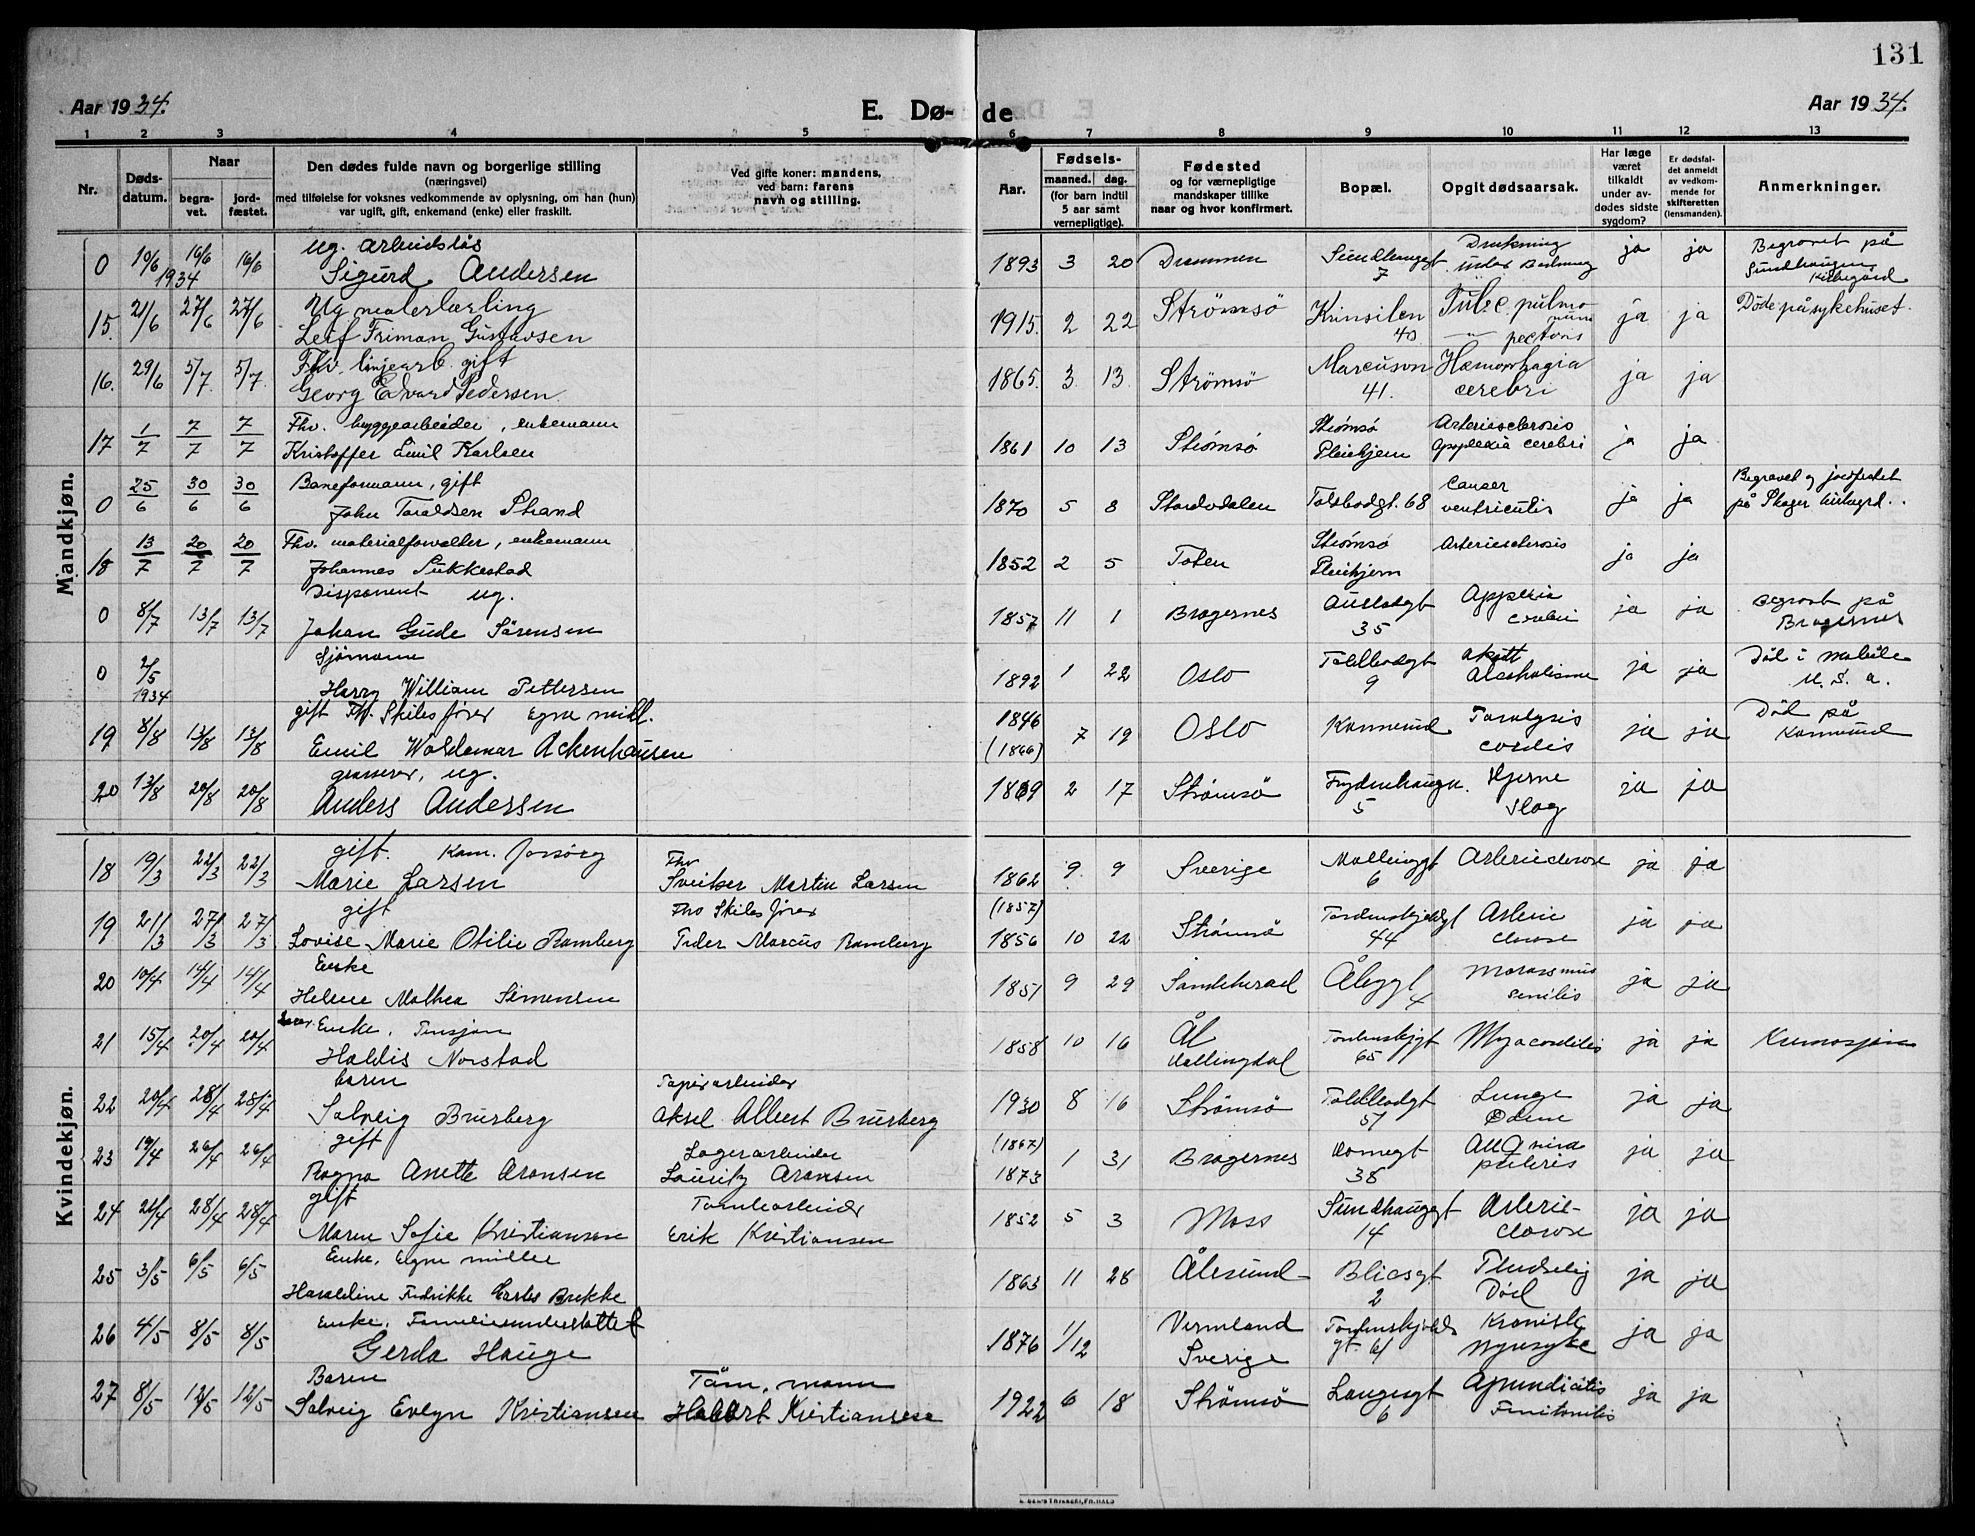 131
Aar 1934.
E. Dø-de
Aar 1934.
1 2 3 4 5 6 7 8 9 10 11 12 13
Nr.
Døds-
datum.
Naar
begra-
vet.
jord-
fæstet.
Den dødes fulde navn og borgerlige stilling
(næringsvei)
med tilføielse for voksnes vedkommende av oplysning, om han (hun)
var ugift, gift, enkemand (enke) eller fraskilt.
Ved gifte koner: mandens,
ved barn: farens
navn og stilling.
Aar.
Fødsels-
maaned. dag.
(for barn indtil
5 aar samt
vernepligtige).
Fødested
og for værnepligtige
mandskaper tillike
naar og hvor konfirmert.
Bopæl.
Opgit dødsaarsak.
Har læge
været
tilkaldt
under av-
dødes sidste
sygdom?
Er dødsfal-
det anmeldt
av vedkom-
mende for
skifteretten
(lensmanden).
Anmerkninger.
Mandkjøn.
ug. Arbeidsløs
0 10/6 1934 16/6 16/6 Sigurd Andersen 1893 3 20 Drammen Sundhauggt 7 Drukning under Badning ja ja Begravet på Sundhaugen Kirkegård
Ug malerlærling
15. 21/6 27/6 27/6 Leif Friman Gustavsen 1915. 2 22 Strömsö 40 Tub.c. pulmonum — " — pectoris ja ja Døde på sykehuset.
Fhv. linjearb. gift
16. 29/6 5/7. 5/7. Georg Edvard Pedersen. 1865. 3. 13. Strömsö 41. Hæmorrhagia cerebri ja ja
Fhv. byggearbeider, enkemann
17 1/7 7/7 7/7 Kristoffer Emil Karlsen 1861 10 13 Strømsø Strømsø Pleiehjem Arteriesclerosis Apoplexia cerebri ja ja
Baneformann, gift
0 25/6 30/6 30/6 John Taraldsen Strand 1870 5 8 Størdalen Tolbodgt. 68 Cancer ventriculis ja ja Begravet og jordfestet på Skoger kirkegrd.
Fhv. materialforvalter, enkemann
18 13/7 20/7 20/7 Johannes Sukkestad 1852 2 5 Toten Strømsø Pleiehjem Arteriesclerosis ja ja
Disponent ug.
0 8/7 13/7 13/7 Johan Gude Sørensen 1857 11 1 Bragernes 35 Appexia cerebri ja ja Begravet på Bragernes
Sjømann
0 2/5 1934 Harry William Pettersen 1892 1 22 Oslo Toldbodgt 9 Akutt Alcoholisme ja ja Død i Mobile U. S. A.
gift Fhv. Skibsfører Egne midl.
19 8/8 13/8 13/8 Emil Woldemar Ackenhausen 1846 (1866) 7 19 Oslo Konnerud Paralysis cordis ja ja Død på Konnerud
grosserer, ug.
20 13/8 20/8 20/8 Anders Andersen 1869 2 17 Strømsø Frydenhaugn. 5 Hjerneslag ja ja
Kvindekjøn.
gift. Kom. forsørg
18 19/3 22/3 22/3 Marie Larsen Fhv Sveitser Martin Larsen 1862 9. 9 Sverige Mollinggt 6 Arteriesclerose ja ja
gift
19 21/3 27/3 27/3 Lovise Marie Otilie Ramberg Fhv Skibsfører Peder Marcus Ramberg (1857) 1856 10 22 Strømsø Tordenskjoldgt 44 Arterieclerose ja ja
Enke
20 10/4 14/4 14/4 Helene Mathea Simensen 1851 9 29 Sandeherad Åleggt 4 Marassmus senilis ja ja
Lærer. Enke. Pensjon
21 15/4 20/4 20/4 Haldis Norstad 1858 10 16 Ål Hallingdal Tordenskjgt 65 Myocarditis ja ja Kremasjon
barn
22 20/4 28/4 28/4 Solveig Brusberg Papirarbeider Aksel Albert Brusberg 1930 8 16 Strømsø Toldbodgt 51 Lunge Ødem ja ja
gift
23 19/4 26/4 26/4 Ragna Anette Aronsen Lagerarbeider Lauritz Aronsen (1867) 1873 1 31 Bragernes 38 ja ja
gift
24 21/4 28/4 28/4 Maren Sofie Kristiansen Tomtearbeider Erik Kristiansen 1852 5 3 Moss Sundhauggt 14 Arterie-clerose ja ja
Enke. Egne midler
25 3/5 6/5 6/5 Haraldine Fredrikke Bakke 1863 11 28 Ålesund Blicsgt 2 Pludselig Død ja ja
Enke. Familieunderstøttet
26 4/5 8/5 8/5 Gerda Hauge 1876 1/12 Vermland Sverige Tordenskjolds gt 61 Kronisk Nyresyke ja ja
Barn
27 8/5 12/5 12/5 Solveig Evelyn Kristiansen Tåm. mann Kristiansen 1922 6 18 Strømsø Langesgt 6 Apendicitis Peritonitis ja ja